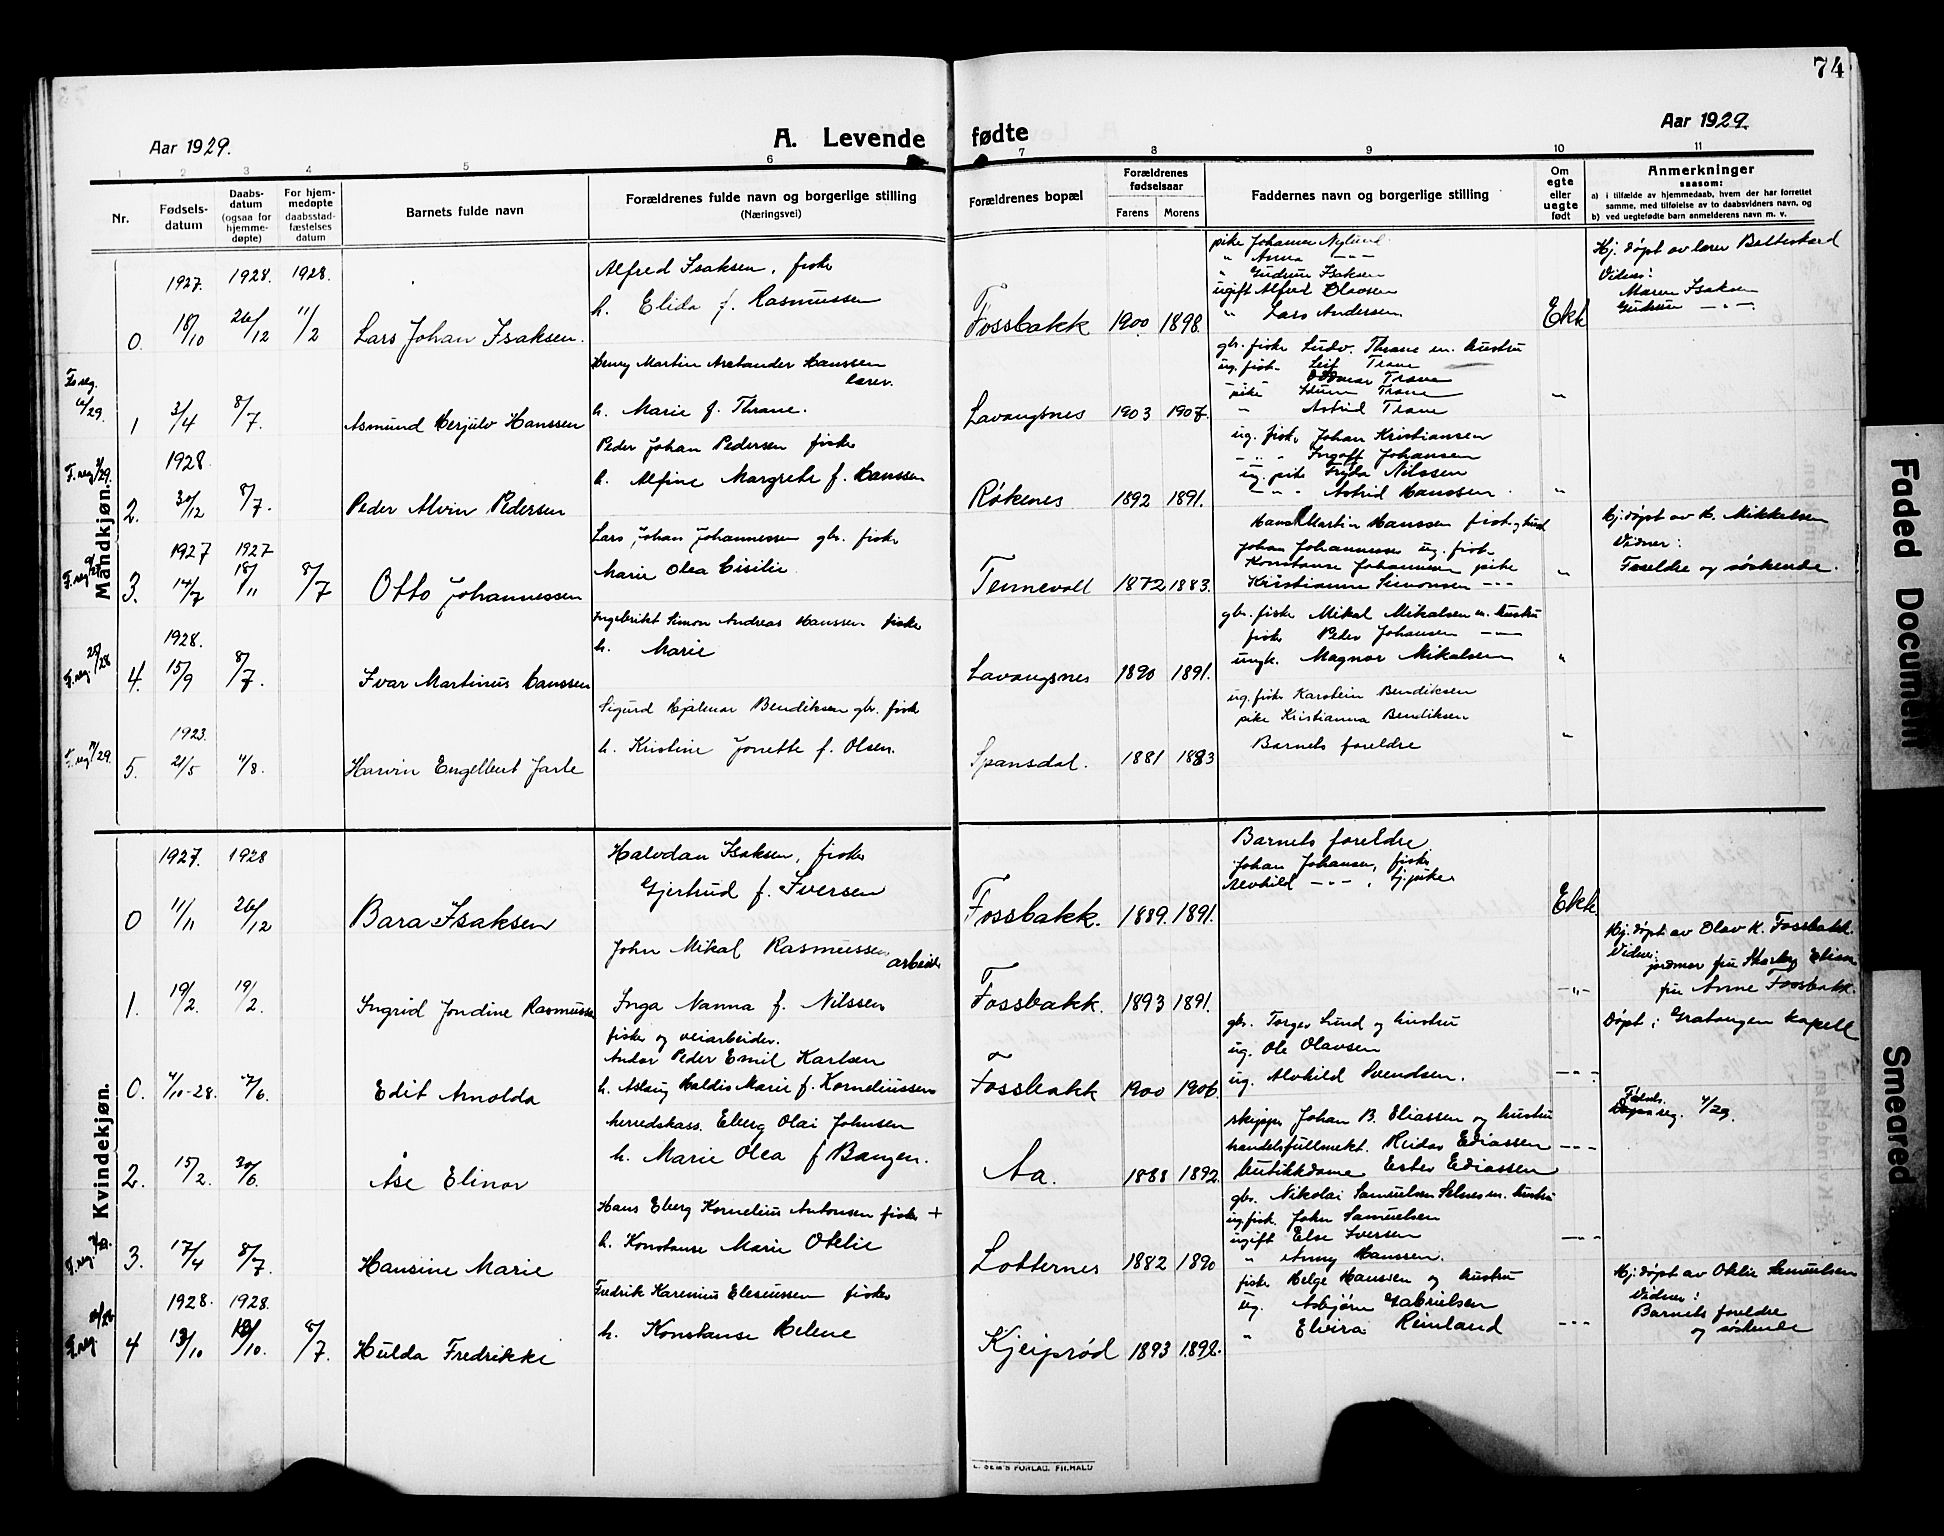 74
Aar 1929.
A. Levende fødte
Aar 1929.
1 2 3 4 5 6 7 8 9 10 11
Nr.
Fødsels-
datum
Daabs-
datum
(ogsaa for
hjemme-
døpte)
For hjem-
medøpte
daabsstad-
fæstelses
datum
Barnets fulde navn
Forældrenes fulde navn og borgerlige stilling
(Næringsvei)
Forældrenes bopæl
Forældrenes
fødselsaar
Farens Morens
Faddernes navn og borgerlige stilling
Om
egte
eller
uegte
født
Anmerkninger
saasom:
a) i tilfælde av hjemmedaab, hvem der har forrettet
samme, med tilføielse av to daabsvidners navn, og
b) ved uegtefødte barn anmelderens navn m. v.
Mandkjøn.
1927. 1928. 1928.
0. 18/10 26/12 11/2
Lars Johan Isaksen.
Alfred Isaksen, fisker
h. Elida f. Rasmussen
Fossbakk 1900 1898
pike Johanna Nylund
" Anna — — —
" Gudrun Isaksen
ugift Alfred Olavsen
" Lars Andersen
Ekk
Hj. døpt av lærer
Vidner:
Maren Isaksen
Gudrun — " —
F. reg.
1 3/4 8/7.
Asmund Herjulv Hanssen
Henry Martin Hanssen
lærer.
h. Marie f. Thrane.
Lavangsnes 1903 1907.
gbr. fisker Ludv. Thrane m. hustru
ug. fisk. Leif Trane
Oddvar Trane
"pike" Trane
" Astrid Trane
"
F. reg. /29.
1928.
2. 30/12 8/7.
Peder Alvin Pedersen
Peder Johan Pedersen fisker
h. Alfine Margrete f. Hanssen
Røkenes 1892 1891.
ug. fisker Johan Kristiansen
— " " Ingolf Johansen
ug. pike Nilssen
— " " Astrid Hanssen.
"
F. reg.
1927 1927
3. 14/7 18/11 8/7
Otto Johannessen
Lars Johan Johannessen gbr. fisker
Marie Olea Cisilie
Tennevoll 1872 1883.
Hans Martin Hanssen fisk. og hust
Johan Johannessen ug. fisk.
Konstanse Johannesen pike
Kristianna Simonsen — — —
"
Hj. døpt av H. Mikkelsen
Vidner:
Foreldre og søskende.
F. reg. 25/28
1928.
4. 15/9 8/7.
Ivar Martinus Hanssen
Ingebrikt Simon Andreas Hanssen fisker
h. Marie
Lavangsnes 1890 1891.
gbr. fisker Mikal Mikalsen m. hustru
fisker Peder Johansen — —
ungk. Magnor Mikalsen
"
F. reg. /29.
1923.
5. 21/5 4/8.
Harvin Engelbert Jarle
Sigurd Hjalmar Bendiksen gbr. fisk
h. Kristine Jonette f. Olsen.
Spansdal. 1881 1883
ug. fisker Karstein Bendiksen
pike Kristianna Bendiksen
Barnets foreldre
"
Kvindekjøn.
1927. 1928
0 11/11 26/12
Bara Isaksen
Halvdan Isaksen, fisker
Gjertrud f. Iversen
Fossbakk. 1889. 1891.
Barnets foreldre
Johan Johansen, fisker
Alvhild — — — , tj.pike
Ekk.
1. 19/2. 19/2.
Ingrid Jondine Rasmussen
John Mikal Rasmussen
arbeider
Inga Nanna f. Nilssen
Fossbakk. 1893 1891.
— " —
Hj. døpt av Olav K. Fossbakk.
Vidner:
fru
fru Anne Fossbakk.
0. 4/10-28. 7/6.
Edit Arnolda
fisker og veiarbeider.
Andor Peder Emil Karlsen
h. Aslaug Haldis Marie f. Korneliussen
Fossbakk 1900 1906.
gbr. Torger Lund og hustru
ug. Ole Olavsen
ug. Alvhild Svendsen.
— — —
Døpt i Gratangen kapell
2. 15/2. 30/6.
Åse Elinor
herredskass. Eberg Olai Johnsen
h. Marie Olea f Bangen.
Aa. 1888 1892.
skipper Johan B. Eliassen og hustru
handelsfullmekt. Reidar Ediassen
butikkdame Ester Ediassen
— — —
Fødsels.
reg. 4/29.
F. reg.
3. 17/4 8/7.
Hansine Marie
Hans Eberg Kornelius Antonsen fisker +
h. Konstanse Marie Otelie
Lotternes 1882 1890
gbr. Nikolai Samuelsen Selnes m. hustru
ug. fisk. John Samuelsen
ugift Else Iversen
" Anny Hanssen.
— — —
F. reg.
1928. 1928.
4 13/10 13/10. 8/7.
Hulda Fredrikke
Fredrik Karenius Eleseussen fisker
h. Konstanse Helene
Kjeiprød 1893 1898.
fisker Helge Hanssen og hustru
ug. Asbjørn Gabrielsen
" Elvira Reinland
— — —
Hj. døpt av Otelie Samuelsen
Vidner:
Barnets foreldre
og søskende
FORLAG. FR.HALD
Faded Document
Smeared